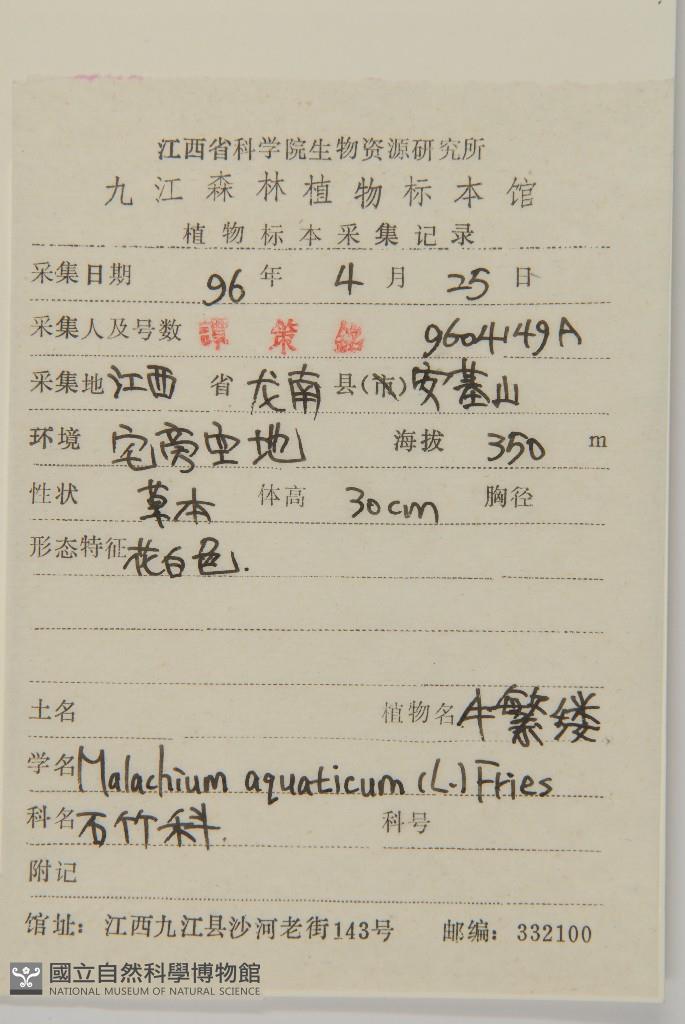 江西省科学院生物资源研究所
九江森林植物标本馆
植物标本采集记录
采集日期 96 年 4 月 25 日
采集人及号数 譚策銘 9604149A
采集地 江西 省 龙南 县(市) 安基山
环境 宅旁空地 海拔 350 m
性状 草本 体高 30cm 胸径
形态特征 花白色.
土名 植物名 牛繁缕
学名 Malachium aquaticum (L.) Fries
科名 石竹科. 科号
附记
馆址: 江西九江县沙河老街143号 邮编: 332100
國立自然科學博物館
NATIONAL MUSEUM OF NATURAL SCIENCE